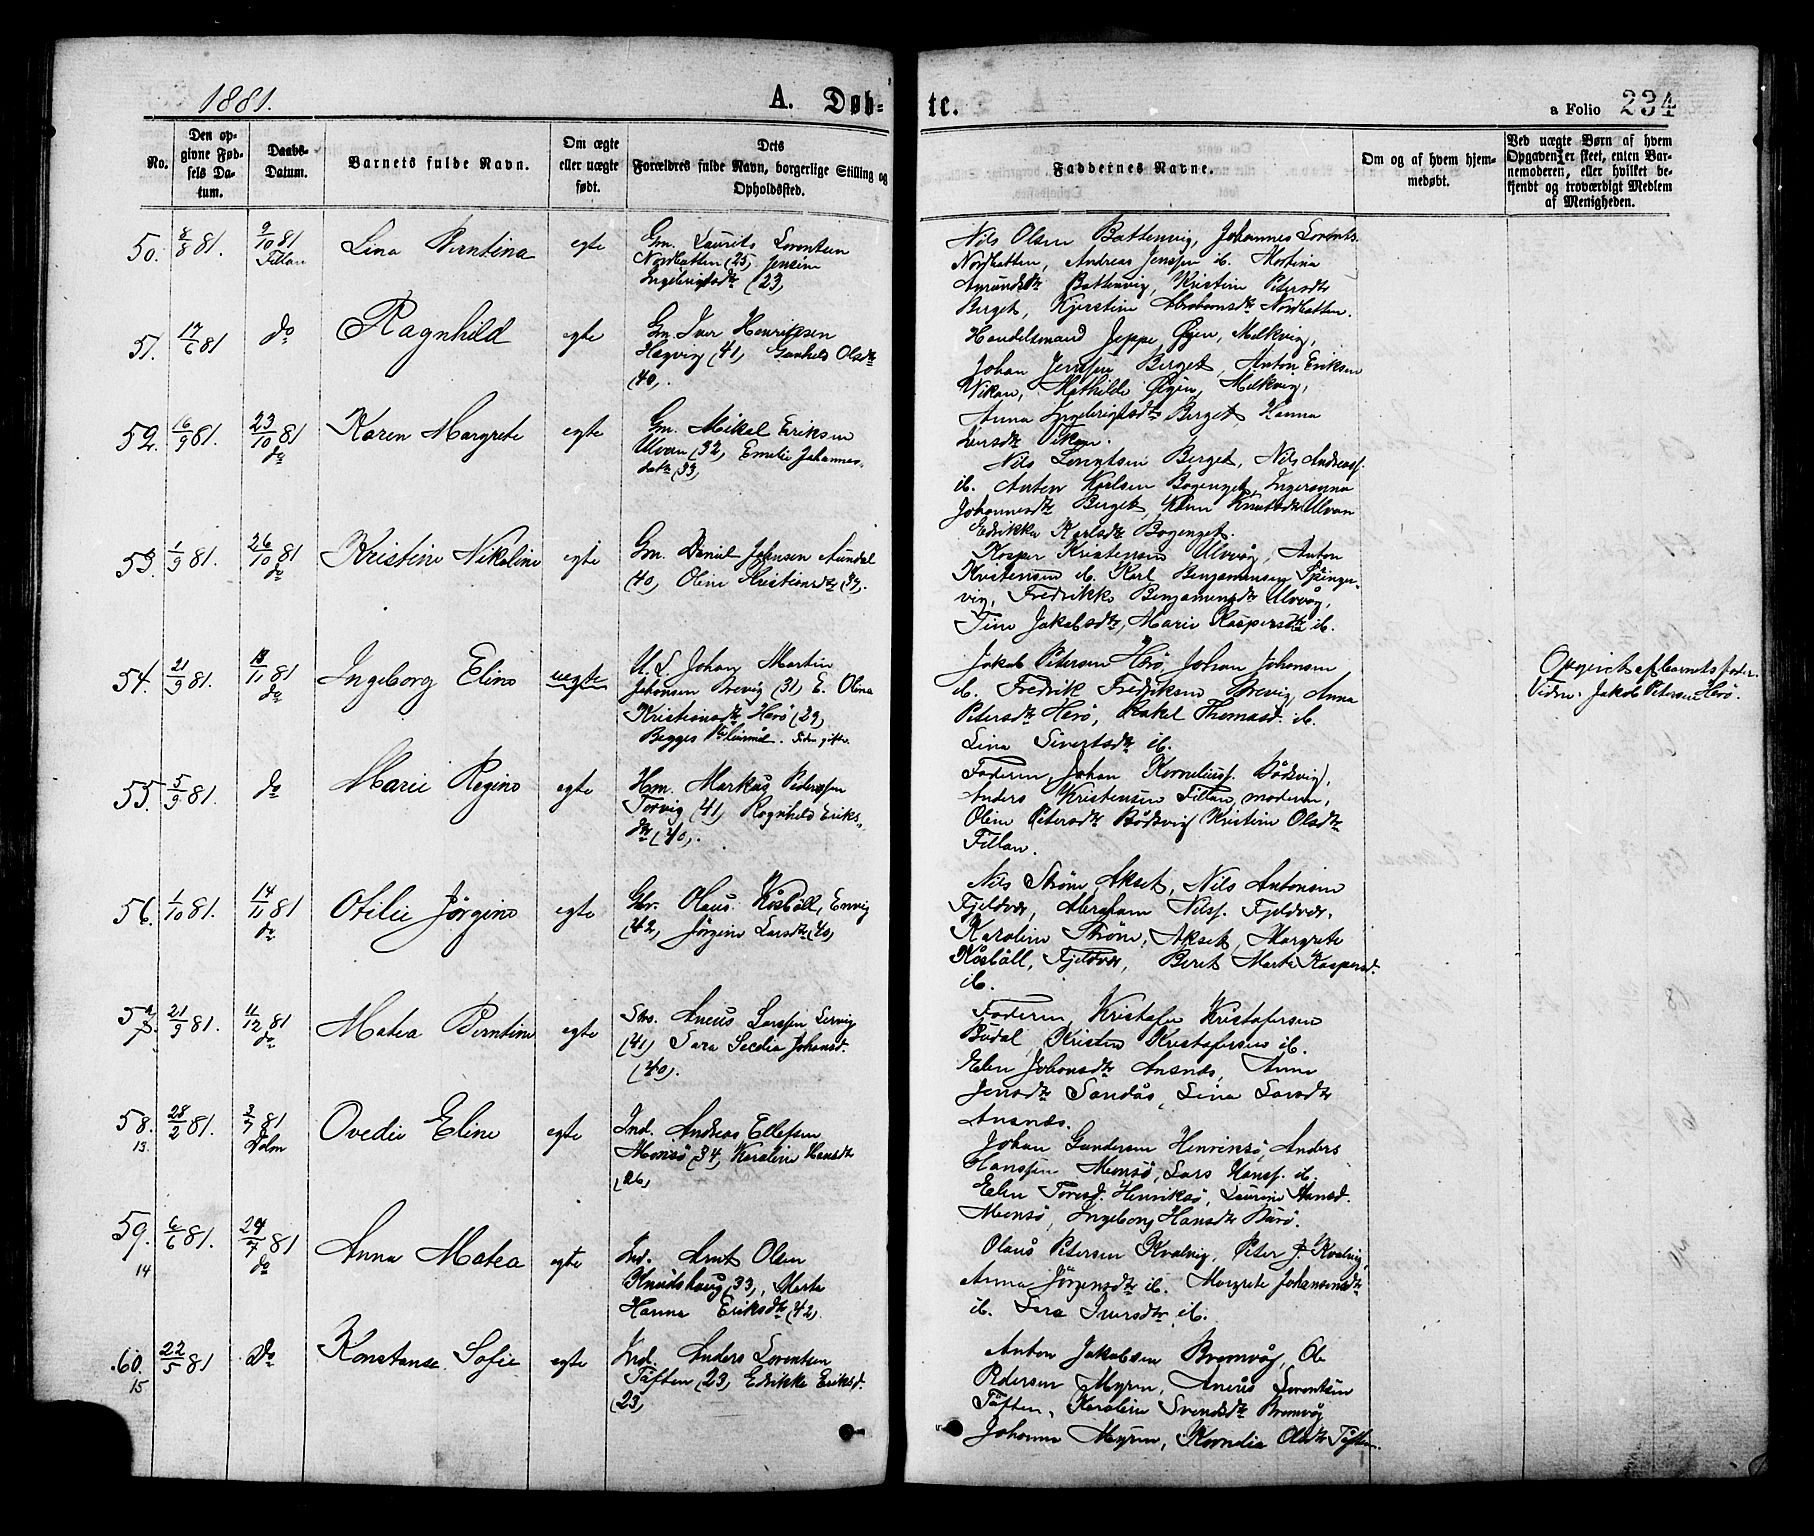 1881.
A. Døb-
te.
a Folio 234
No.
Den op-
givne Fød-
sels Da-
tum.
Daabs-
Datum.
Barnets fulde Navn.
Om ægte
eller uægte
født.
Dets
Forældres fulde Navn, borgerlige Stilling og
Opholdssted.
Faddernes Navne.
Om og af hvem hjem-
medøbt.
Ved uægte Børn af hvem
Opgaven er skeet, enten Bar-
nemoderen, eller hvilket be-
kjendt og troværdigt Medlem
af Menigheden.
50. 8/8 81. 9/10 81 Fillan
Lina Berntina
egte
Gm. Laurits Lorentsen
Nordbotten (25, Jensine
Ingebrigtsdtr (23,
Nils Olsen Battenvig, Johannes Lorents.
Nordbotten, Andreas Jenssen ib. Martina
Battenvig, Kristine Petersdtr
Berget, Kjerstine Abrahamsdtr Nordbotten.
51. 17/6 81 do
Ragnhild
egte
Gm. Iver Henriksen
Hagvig (41, Gunhild Olsdtr
(40,.
Handelsmand Jeppe Øyen, Melkvig,
Johan Jenssen Berget, Anton Eriksen
Wikan, Mathilde Øyen, Melkvig,
Anna Ingebrigtsdtr Berget Hanna
Iversdtr Vikan.
52. 16/9 81. 23/10 81 do
Karen Margrete
egte
Gm. Mikal Eriksen
Ulvan (32, Emelie Johannes-
datr (33,
Nils Lorentsen Berget, Nils Andreass.
ib. Anton Karlsen Bogenget, Ingeranna
Johannesdtr Berget, Knutsdtr Ulvan
Edrikke Karlsdtr Bogenget.
53. 1/9 81. 26/10 81 do
Kristine Nikoline
egte
Gm. Daniel Johnsen Aundal
(40, Oline Kristiansdtr (37.
Kasper Kristensen Ulvvåg, Anton
Kristensen ib. Karl Benjaminsen Springer-
vig, Fredrikke Benjaminsdtr Ulvvåg,
Tine Jakobsdtr, Marie Kaspersdtr ib.
54. 21/9 81. 13/11 81 do
Ingeborg Elina
uegte
U. S. Johan Martin
Johansen Brevig (31, E. Olina
Kristiansdtr Herø (29,
Begges 1ste Leiermål. Siden gifte.
Jakob Petersen Herø, Johan Johansen
ib. Fredrik Fredriksen Brevig, Anna
Petersdtr Herø, Rakel Thomasd. ib.
Lina Sivertsdtr ib.
Opgivet af Barnets fader.
Vidne: Jakob Petersen Herø.
55. 5/9 81. do
Marie Regina
egte
Hm. Markus Pederssen
Torvig (41, Ragnhild Eriks-
dtr (40,.
Faderen, Johan Korneliuss. Bådsvig,
Anders Kristensen Fillan, moderen,
Oline Petersdtr Bådsvig, Kristine Olsdtr
Fillan.
56. 1/10 81. 14/11 81 do
Otilie Jørgina
egte
Gbr. Olaus Kosbøll, Envig
(42, Jørgine Larsdtr (40,
Nils Strøm, Akset, Nils Antonsen
Fjeldvær, Abraham Nilss. Fjeldvær.
Karoline Strøm, Akset, Margrete
Kosbøll, Fjeldvær, Berit Marta Kaspersd.
ib.
57. 21/9 81. 4/12 81 do
Matea Berntine
egte
Strs. Aneus Larssen Servig
(41, Sara Secelia Johansd.
(40,.
Faderen, Kristofer Kristofersen
Budal, Kristen Kristofersen ib.
Elen Johansdtr Ansnes, Anne
Jensdtr Sandås, Lina Larsdtr
Ansnes.
58. 13. 28/2 81. 3/7 81 Dolm
Ovedie Eline
egte
Ind. Andreas Ellefsen
Monsø (34, Karoline Hansdtr
(26,
Johan Gundersen Henrinsø, Anders
Hanssen Monsø, Lars Hanss. ib.
Elen Toresd. Henriksø, Laurine Hansd.
Monsø, Ingeborg Hansdtr Burø.
59. 14 6/6 81. 24/7 81 do
Anna Matea
egte
Ind. Arnt Olsen
Knudshaug (33,, Marta
Hanna Eriksdtr (42,
Olaus Petersen Kvalvig, Peter J. Kvalvig
Anna Jørgensdtr ib. Margrete Johansensdtr
ib. Sara Iversdtr ib.
60. 15 22/5 81 Do
Konstanse Sofie
egte
Ind. Anders Lorentsen
Tåften (23, Edrikke Eriksd.
(23,
Anton Jakobsen Bremvåg, Ole
Pedersen Myren, Aneus Lorentsen
Tåften, Karoline Svendsdtr Bremvåg
Johanna Myren, Kornelia Olsdtr Tåften.